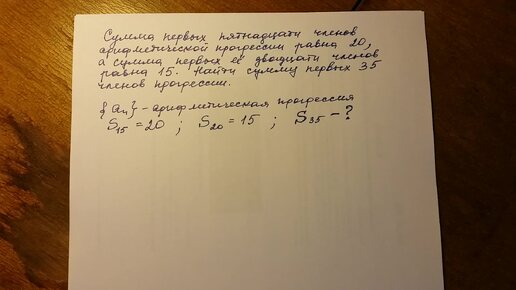 Сумма первых пятнадцати членов
арифметической прогрессии равна 20,
а сумма первых её двадцати членов
равна 15. Найти сумму первых 35
членов прогрессии.
{aₙ} - арифметическая прогрессия
S₁₅ = 20 ; S₂₀ = 15 ; S₃₅ - ?